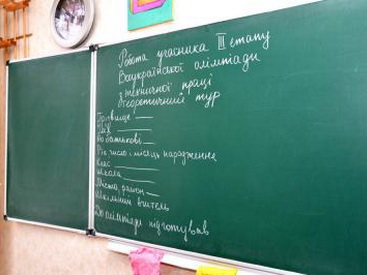 Робота учасника III етапу
Всеукраїнської олімпіади
з технічної праці
Теоретичний тур
Прізвище
Ім'я
По батькові
Рік, число і місяць народження
Клас
Школа
Місто, район
Шкільний вчитель
До олімпіади підготував